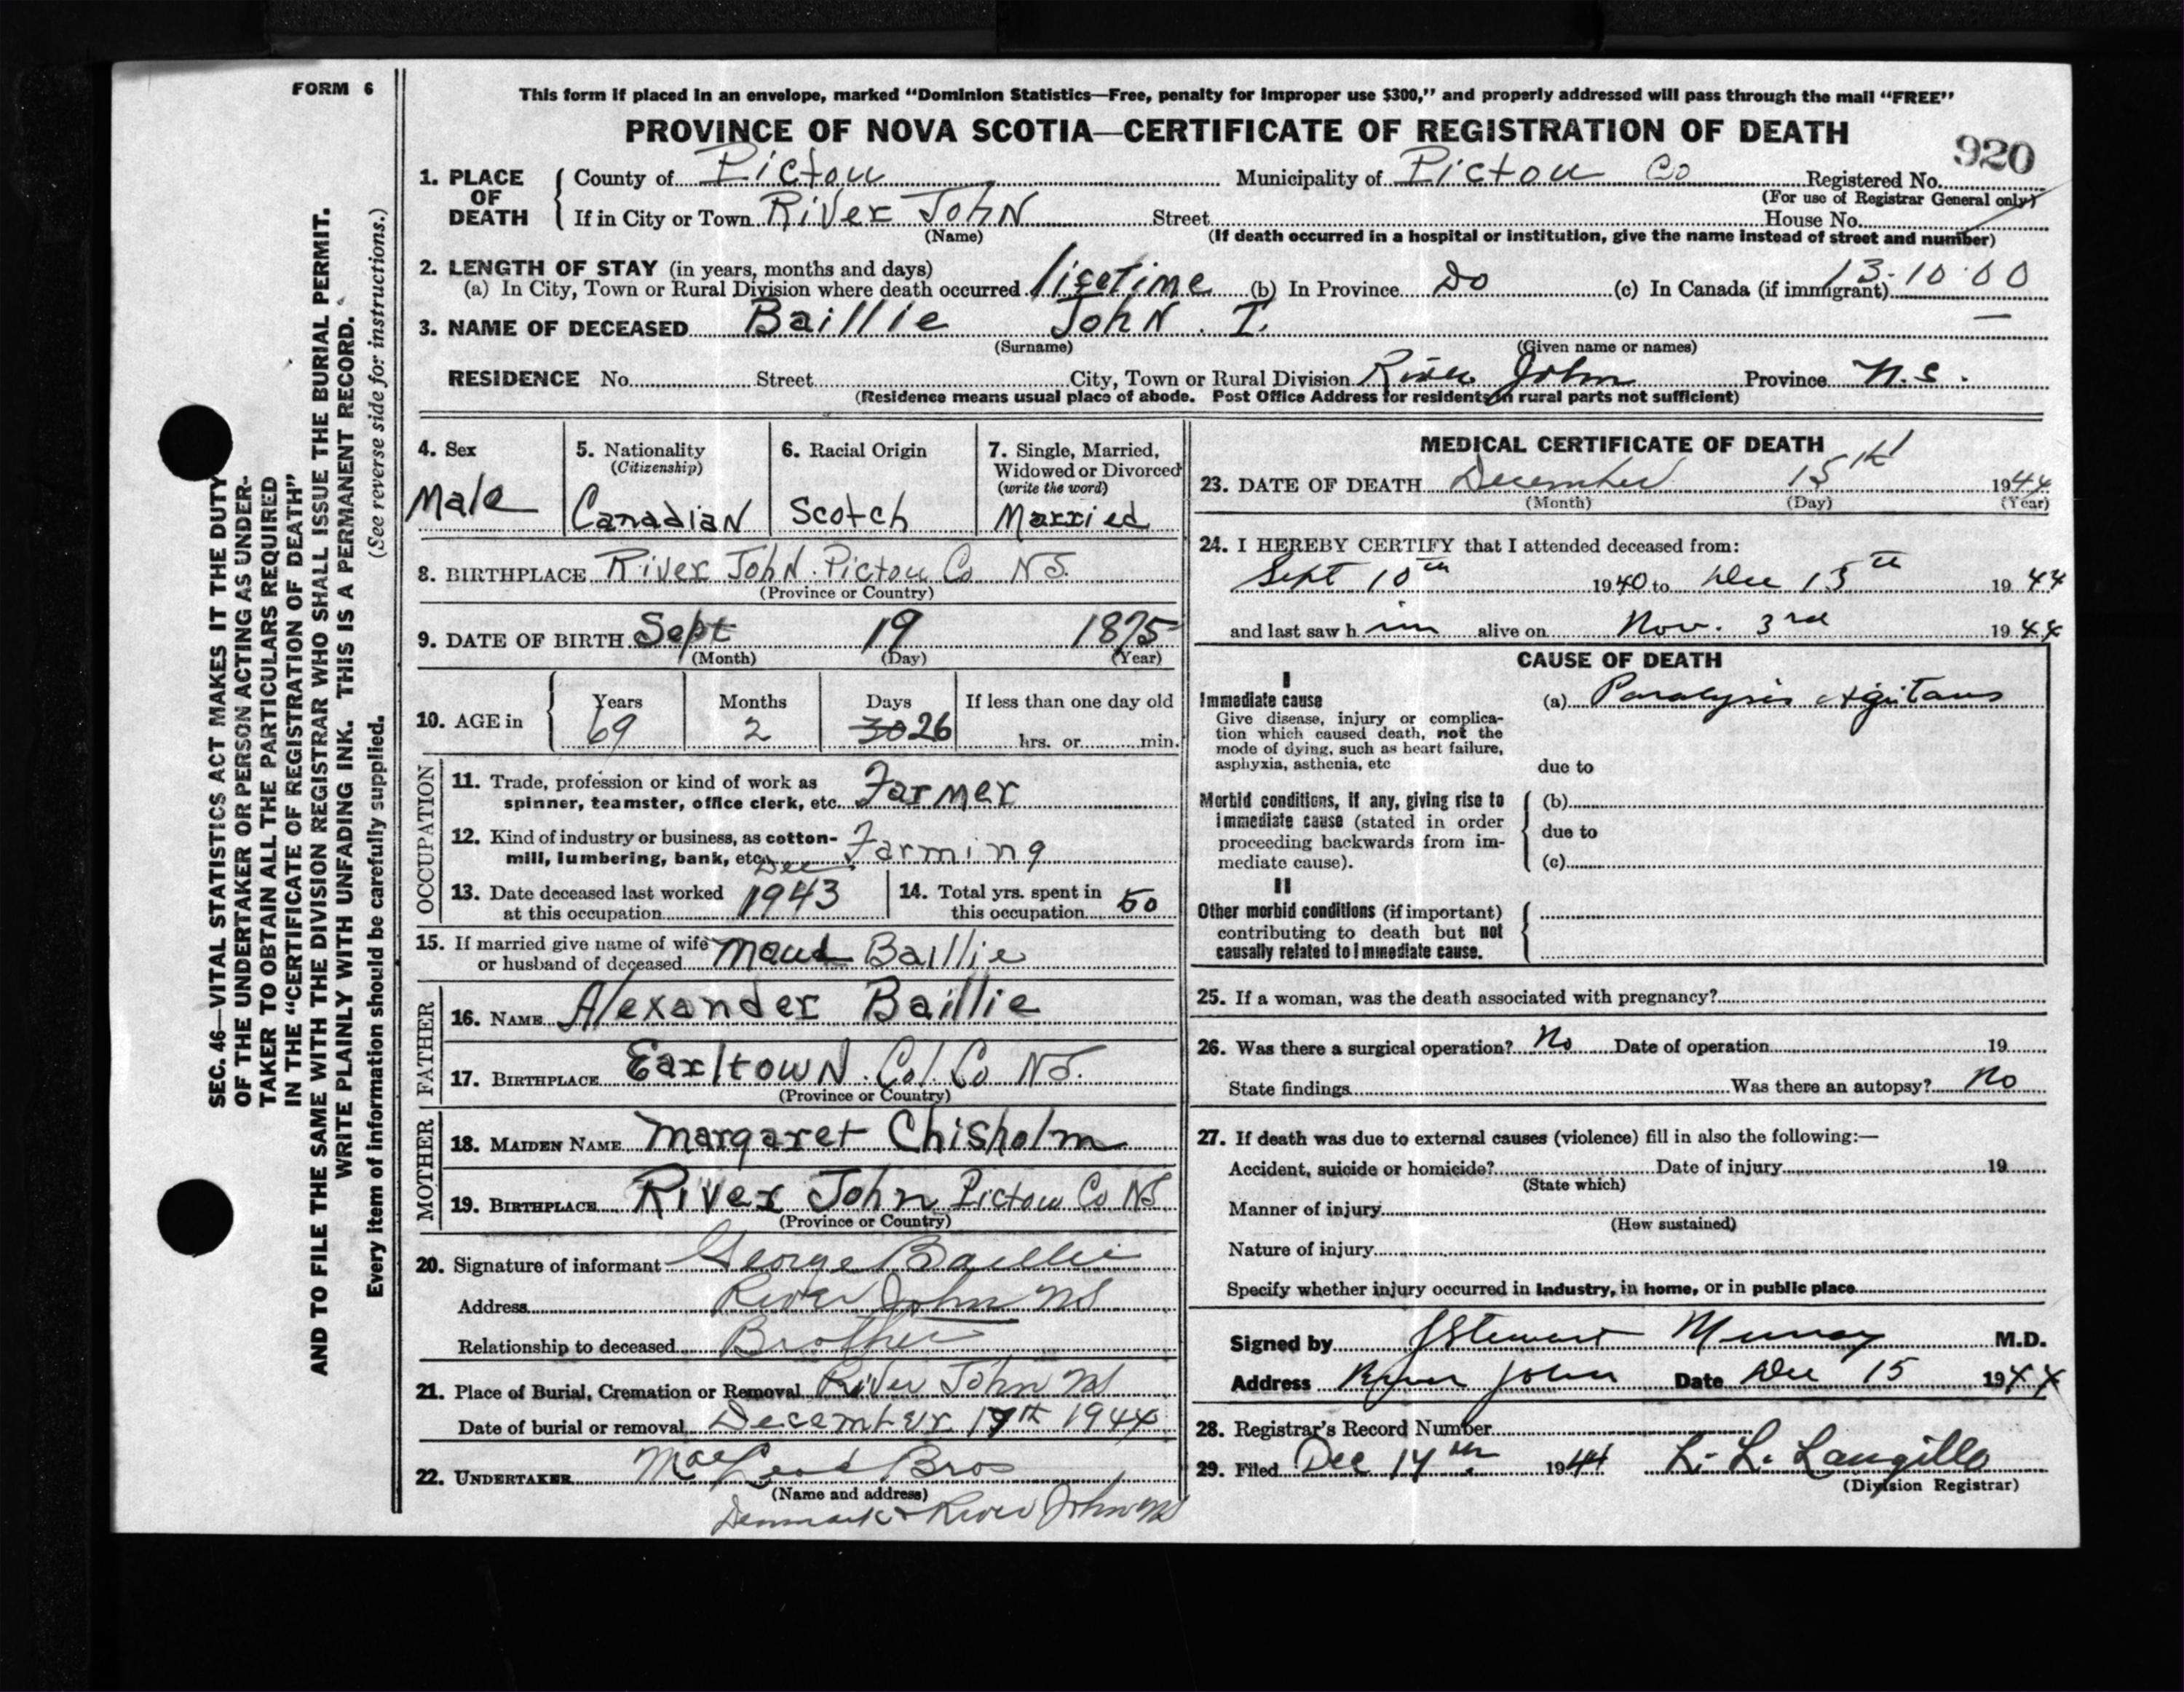 FORM 6
This form if placed in an envelope, marked “Dominion Statistics—Free, penalty for improper use $300,” and properly addressed will pass through the mail “FREE”
PROVINCE OF NOVA SCOTIA—CERTIFICATE OF REGISTRATION OF DEATH
920
1. PLACE OF DEATH { County of Pictou Municipality of Pictou Co Registered No.
(For use of Registrar General only)
If in City or Town River John Street House No.
(Name) (If death occurred in a hospital or institution, give the name instead of street and number)
2. LENGTH OF STAY (in years, months and days)
(a) In City, Town or Rural Division where death occurred lifetime (b) In Province Do (c) In Canada (if immigrant) 13·10·00
3. NAME OF DECEASED Baillie John. I. —
(Surname) (Given name or names)
RESIDENCE No. Street City, Town or Rural Division River John Province N.S.
(Residence means usual place of abode. Post Office Address for residents in rural parts not sufficient)
4. Sex Male
5. Nationality (Citizenship) Canadian
6. Racial Origin Scotch
7. Single, Married, Widowed or Divorced (write the word) Married
8. BIRTHPLACE River John. Pictou Co NS.
(Province or Country)
9. DATE OF BIRTH Sept 19 1875
(Month) (Day) (Year)
10. AGE in { Years 69 Months 2 Days 30 26 If less than one day old hrs. or min.
OCCUPATION
11. Trade, profession or kind of work as
spinner, teamster, office clerk, etc. Farmer
12. Kind of industry or business, as cotton-
mill, lumbering, bank, etc. Farming
13. Date deceased last worked
at this occupation Dec 1943
14. Total yrs. spent in
this occupation 50
15. If married give name of wife
or husband of deceased Maud Baillie
FATHER
16. NAME Alexander Baillie
17. BIRTHPLACE Earltown. Col. Co NS.
(Province or Country)
MOTHER
18. MAIDEN NAME Margaret Chisholm
19. BIRTHPLACE River John Pictou Co NS
(Province or Country)
20. Signature of informant George Baillie
Address River John NS
Relationship to deceased Brother
21. Place of Burial, Cremation or Removal River John NS
Date of burial or removal December 17th 1944
22. UNDERTAKER MacLeod Bros
(Name and address)
Denmark & River John NS
MEDICAL CERTIFICATE OF DEATH
23. DATE OF DEATH December 15th 1944
(Month) (Day) (Year)
24. I HEREBY CERTIFY that I attended deceased from:
Sept 10th 1940 to Dec 15th 1944
and last saw him alive on Nov. 3rd 1944
CAUSE OF DEATH
I
Immediate cause
Give disease, injury or complica-
tion which caused death, not the
mode of dying, such as heart failure,
asphyxia, asthenia, etc
(a) Paralysis Agitans
due to
Morbid conditions, if any, giving rise to
immediate cause (stated in order
proceeding backwards from im-
mediate cause).
(b)
due to
(c)
II
Other morbid conditions (if important)
contributing to death but not
causally related to immediate cause.
25. If a woman, was the death associated with pregnancy?
26. Was there a surgical operation? No Date of operation 19
State findings Was there an autopsy? No
27. If death was due to external causes (violence) fill in also the following:—
Accident, suicide or homicide? Date of injury 19
(State which)
Manner of injury
(How sustained)
Nature of injury
Specify whether injury occurred in industry, in home, or in public place
Signed by J Stewart Murray M.D.
Address River John Date Dec 15 1944
28. Registrar's Record Number
29. Filed Dec 14th 1944 L. L. Langille
(Division Registrar)
SEC. 46—VITAL STATISTICS ACT MAKES IT THE DUTY
OF THE UNDERTAKER OR PERSON ACTING AS UNDER-
TAKER TO OBTAIN ALL THE PARTICULARS REQUIRED
IN THE “CERTIFICATE OF REGISTRATION OF DEATH”
AND TO FILE THE SAME WITH THE DIVISION REGISTRAR WHO SHALL ISSUE THE BURIAL PERMIT.
WRITE PLAINLY WITH UNFADING INK. THIS IS A PERMANENT RECORD.
Every item of information should be carefully supplied. (See reverse side for instructions.)